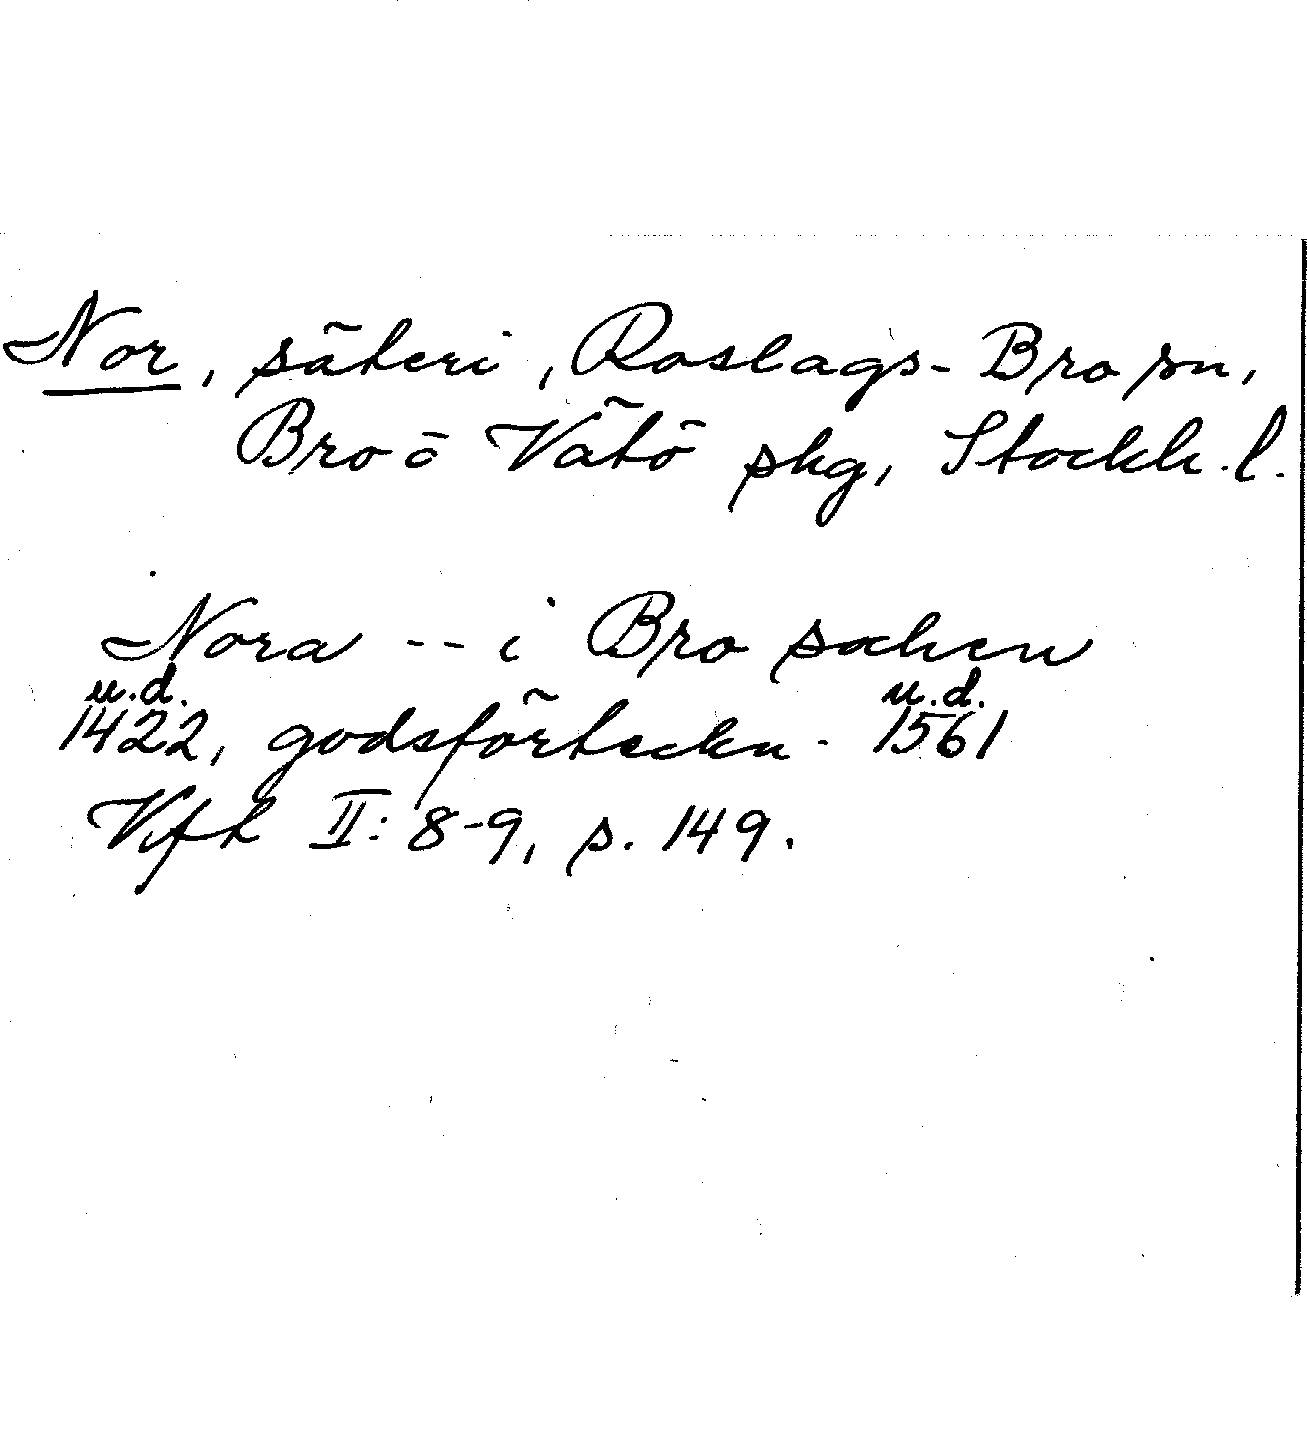 Nor, säteri, Roslags-Bro sn,
Bro o Vätö skg, Stockh. l.
Nora -- i Bro sokn
u.d. u.d.
1422, godsförteckn. 1561
Vfh II: 8-9, s. 149.